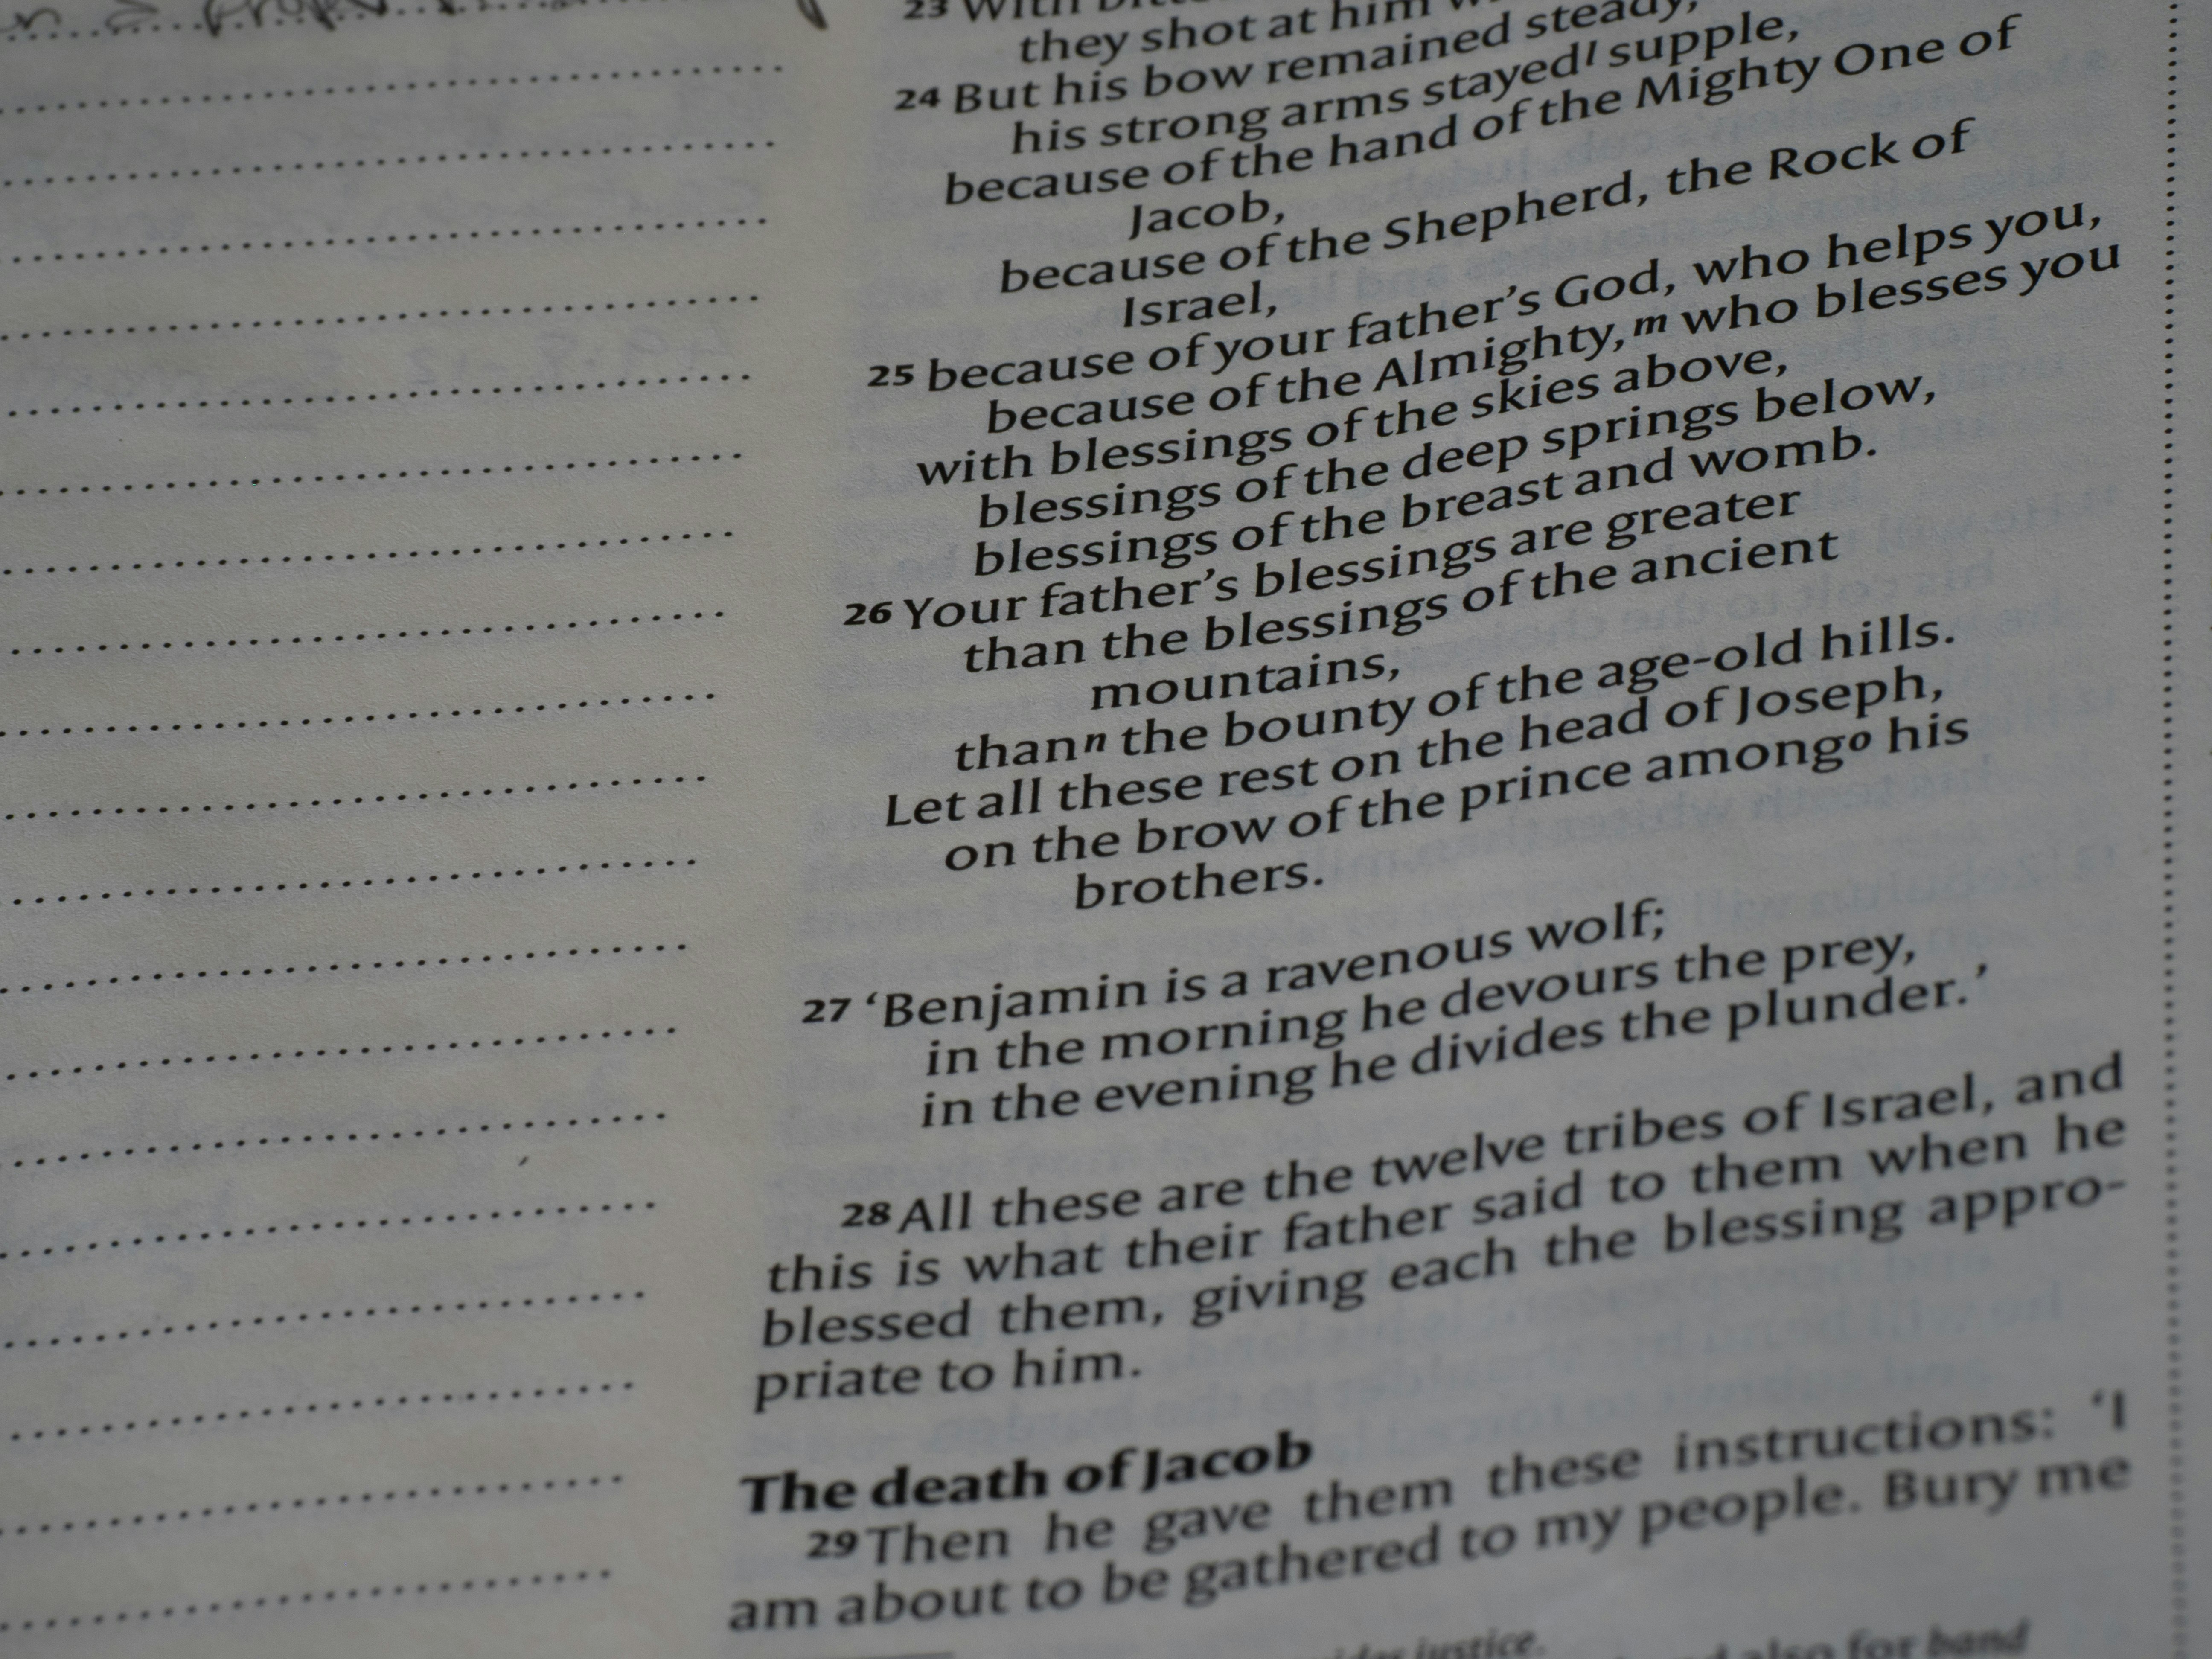 23 With
they shot at him
24 But his bow remained steady,
his strong arms stayedˡ supple,
because of the hand of the Mighty One of
Jacob,
because of the Shepherd, the Rock of
Israel,
25 because of your father’s God, who helps you,
because of the Almighty,ᵐ who blesses you
with blessings of the skies above,
blessings of the deep springs below,
blessings of the breast and womb.
26 Your father’s blessings are greater
than the blessings of the ancient
mountains,
thanⁿ the bounty of the age-old hills.
Let all these rest on the head of Joseph,
on the brow of the prince amongᵒ his
brothers.
27 ‘Benjamin is a ravenous wolf;
in the morning he devours the prey,
in the evening he divides the plunder.’
28 All these are the twelve tribes of Israel, and
this is what their father said to them when he
blessed them, giving each the blessing appro-
priate to him.
The death of Jacob
29 Then he gave them these instructions: ‘I
am about to be gathered to my people. Bury me
justice.
also for hand